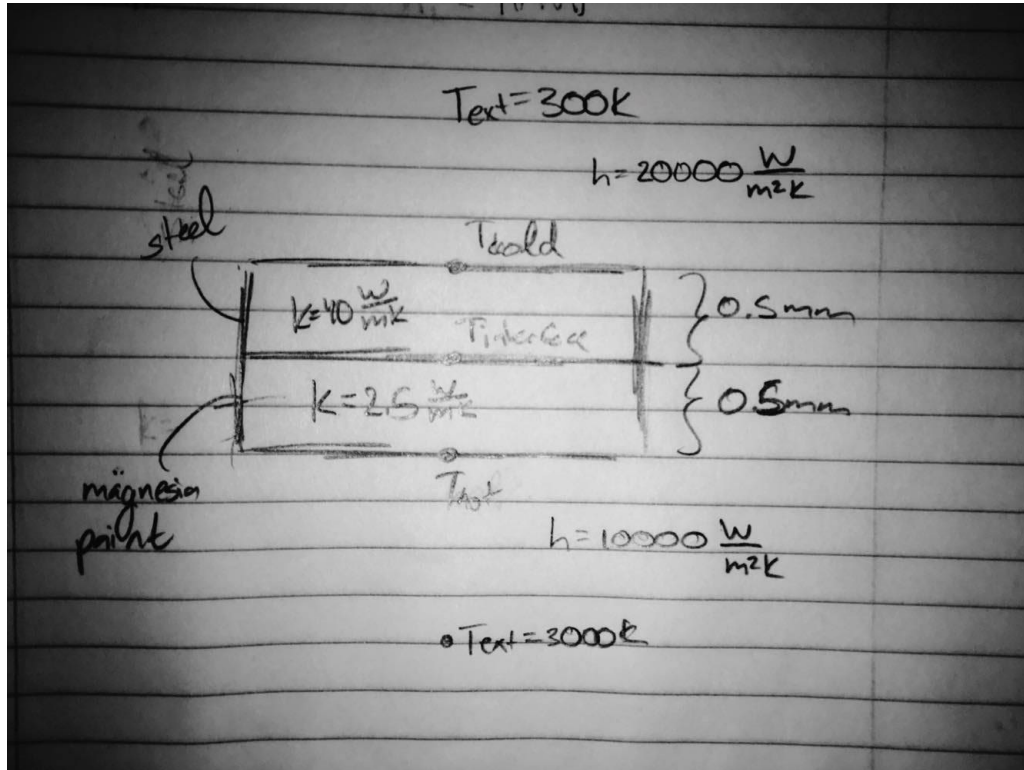 Text=300K
h=20000 W/m²K
steel
Tcold
k=40 W/mK
0.5mm
Tinterface
k=2.5 W/mK
0.5mm
Thot
magnesia
paint
h=10000 W/m²K
Text=3000K